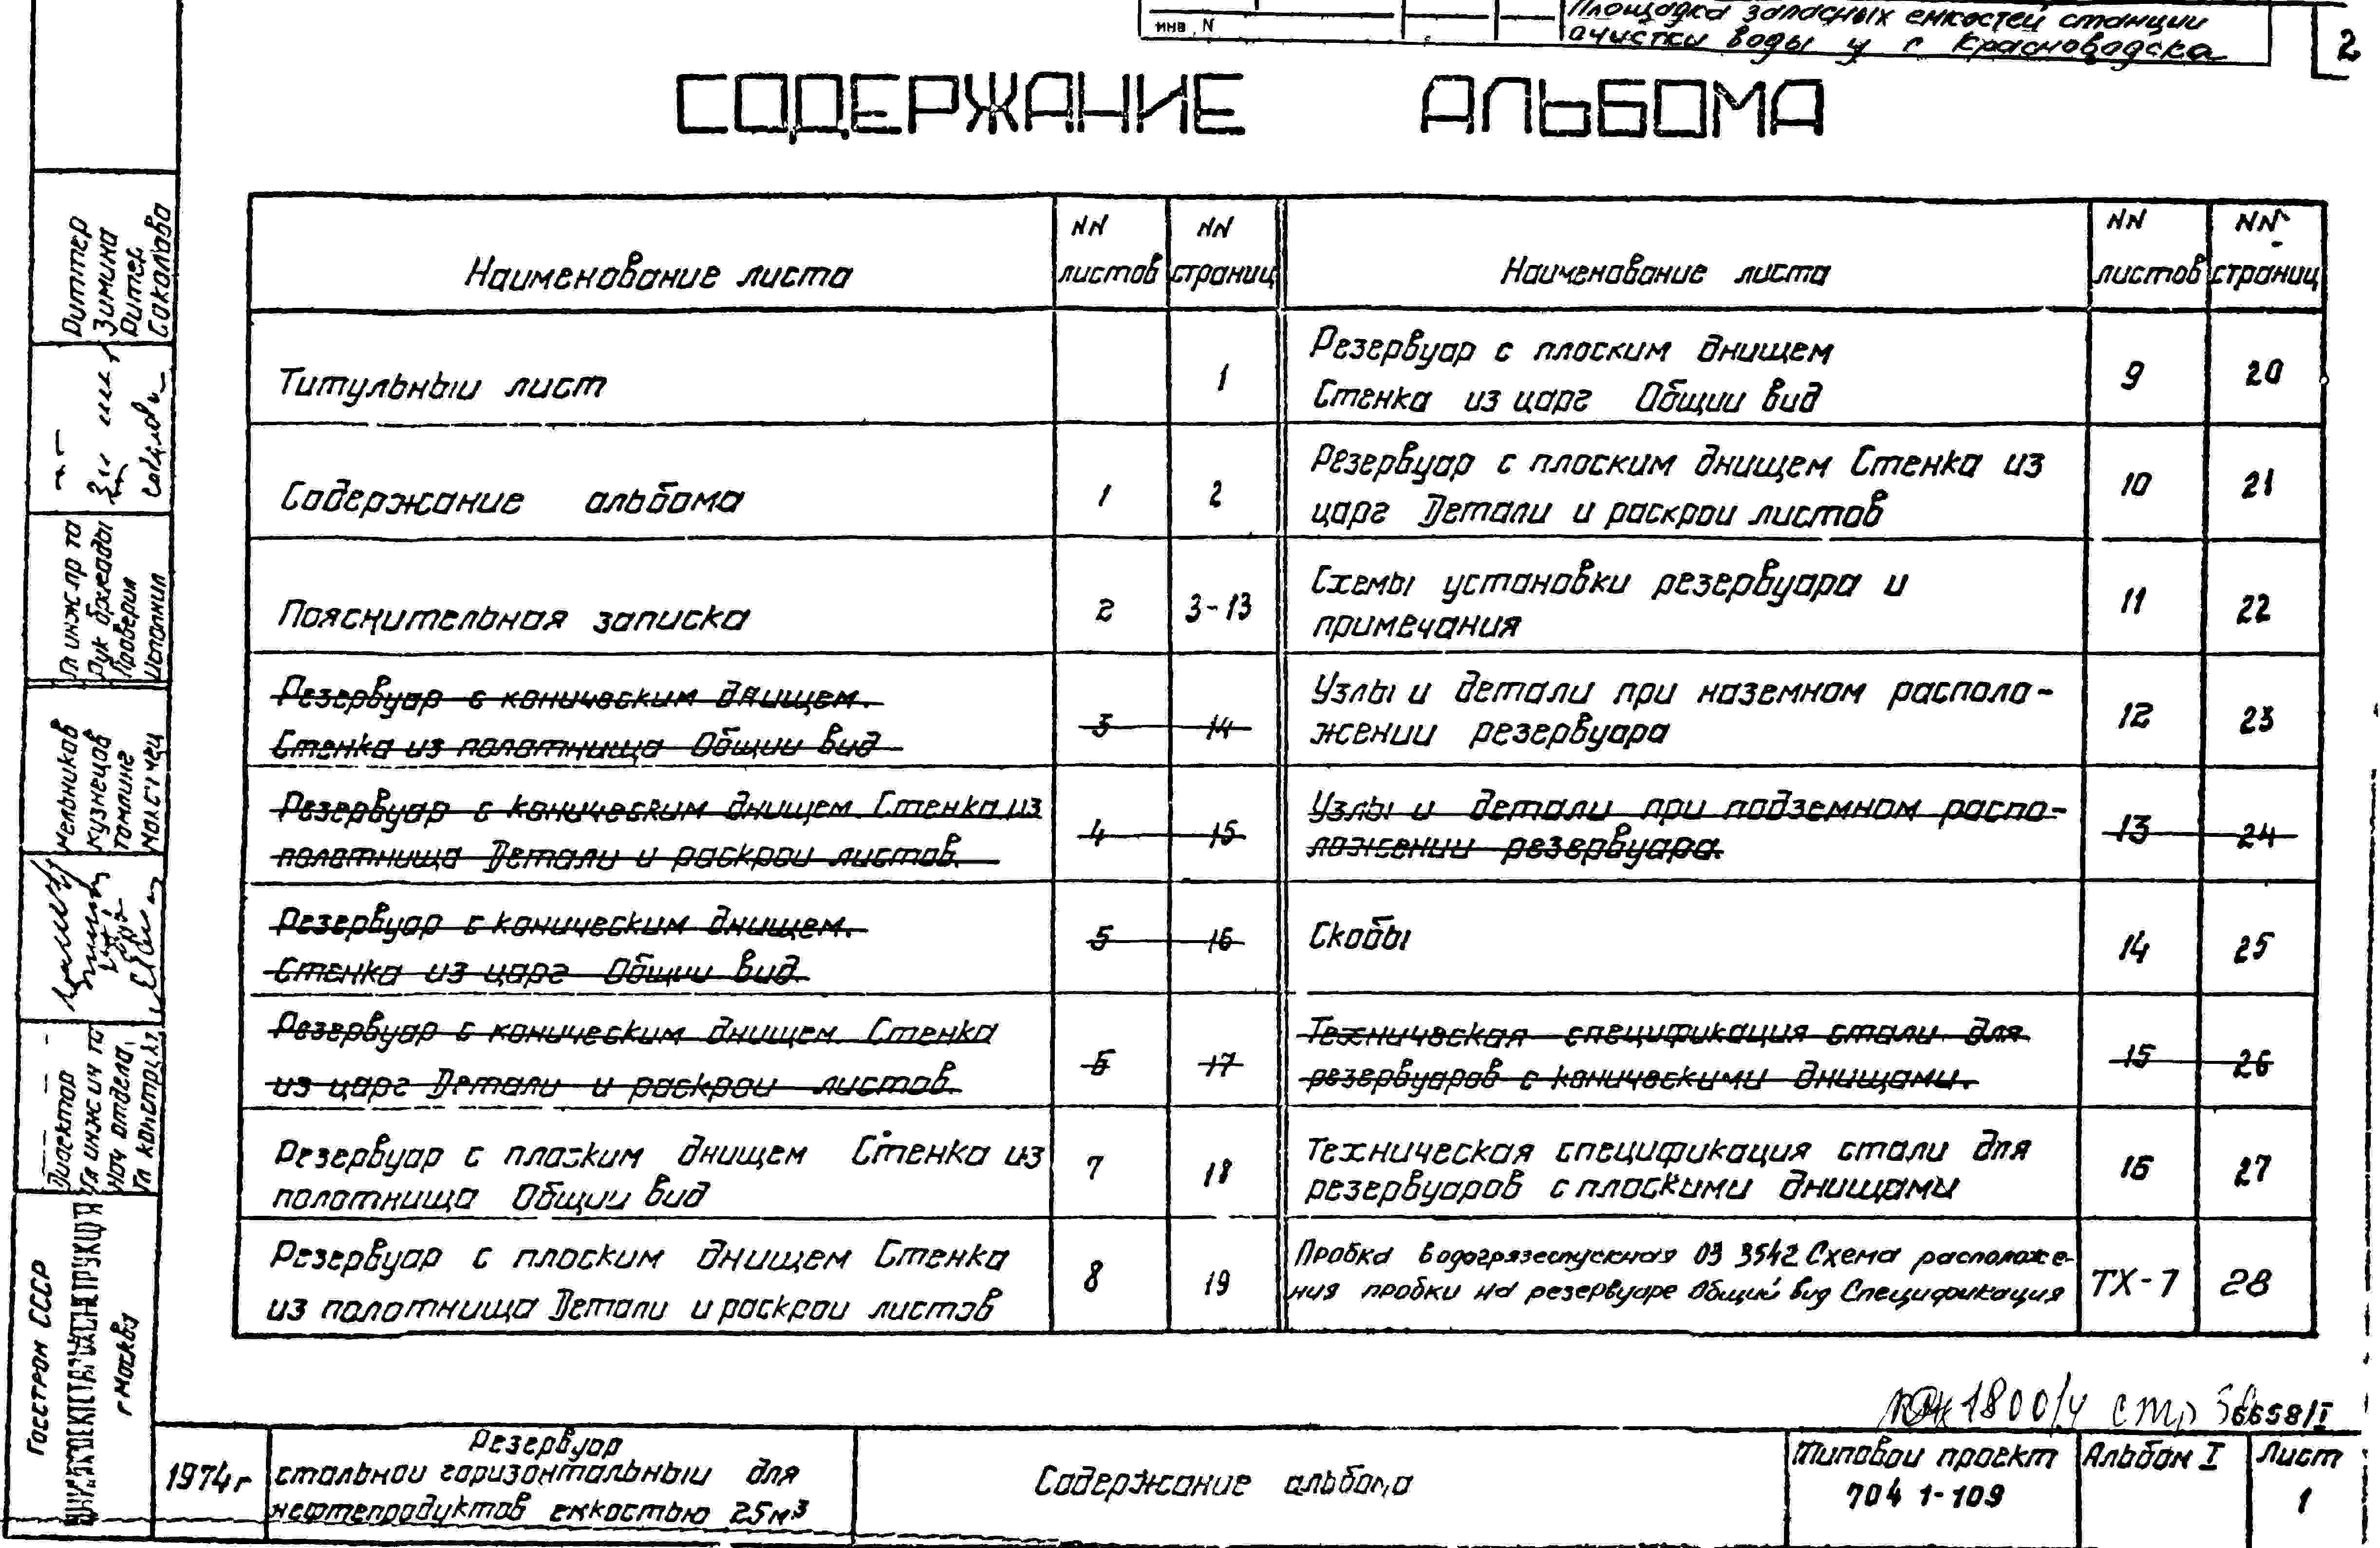 инв. N
Площадка запасных емкостей станции
очистки воды у г Красноводска
2
СОДЕРЖАНИЕ АЛЬБОМА
Наименование листа
NN листов
NN страниц
Наименование листа
NN листов
NN страниц
Титульный лист 1
Содержание альбома 1 2
Пояснительная записка 2 3-13
Резервуар с коническим днищем.
Стенка из полотнища Общий вид 3 14
Резервуар с коническим днищем. Стенка из
полотнища Детали и раскрои листов. 4 15
Резервуар с коническим днищем.
Стенка из царг Общий вид. 5 16
Резервуар с коническим днищем Стенка
из царг Детали и раскрои листов. 6 17
Резервуар с плоским днищем Стенка из
полотнища Общий вид 7 18
Резервуар с плоским днищем Стенка
из полотнища Детали и раскрои листов 8 19
Резервуар с плоским днищем
Стенка из царг Общий вид 9 20
Резервуар с плоским днищем Стенка из
царг Детали и раскрои листов 10 21
Схемы установки резервуара и
примечания 11 22
Узлы и детали при наземном располо-
жении резервуара 12 23
Узлы и детали при подземном распо-
ложении резервуара. 13 24
Скобы 14 25
Техническая спецификация стали для
резервуаров с коническими днищами. 15 26
Техническая спецификация стали для
резервуаров с плоскими днищами 16 27
Пробка водогрязеспускная ОЗ 3542 Схема расположе-
ния пробки на резервуаре Общий вид Спецификация ТХ-7 28
1800/4 стр
6658/I
1974г
Резервуар
стальной горизонтальный для
нефтепродуктов емкостью 25м³
Содержание альбома
Типовой проект
704 1-109
Альбом I
Лист
1
Госстрой СССР
г Москва
Директор
Гл инж ин та
Нач отдела
Гл констр
Мельников
Кузнецов
Томлинг
Гл инж пр та
Рук бригады
Проверил
Исполнил
Риттер
Зимина
Ритер
Соколова